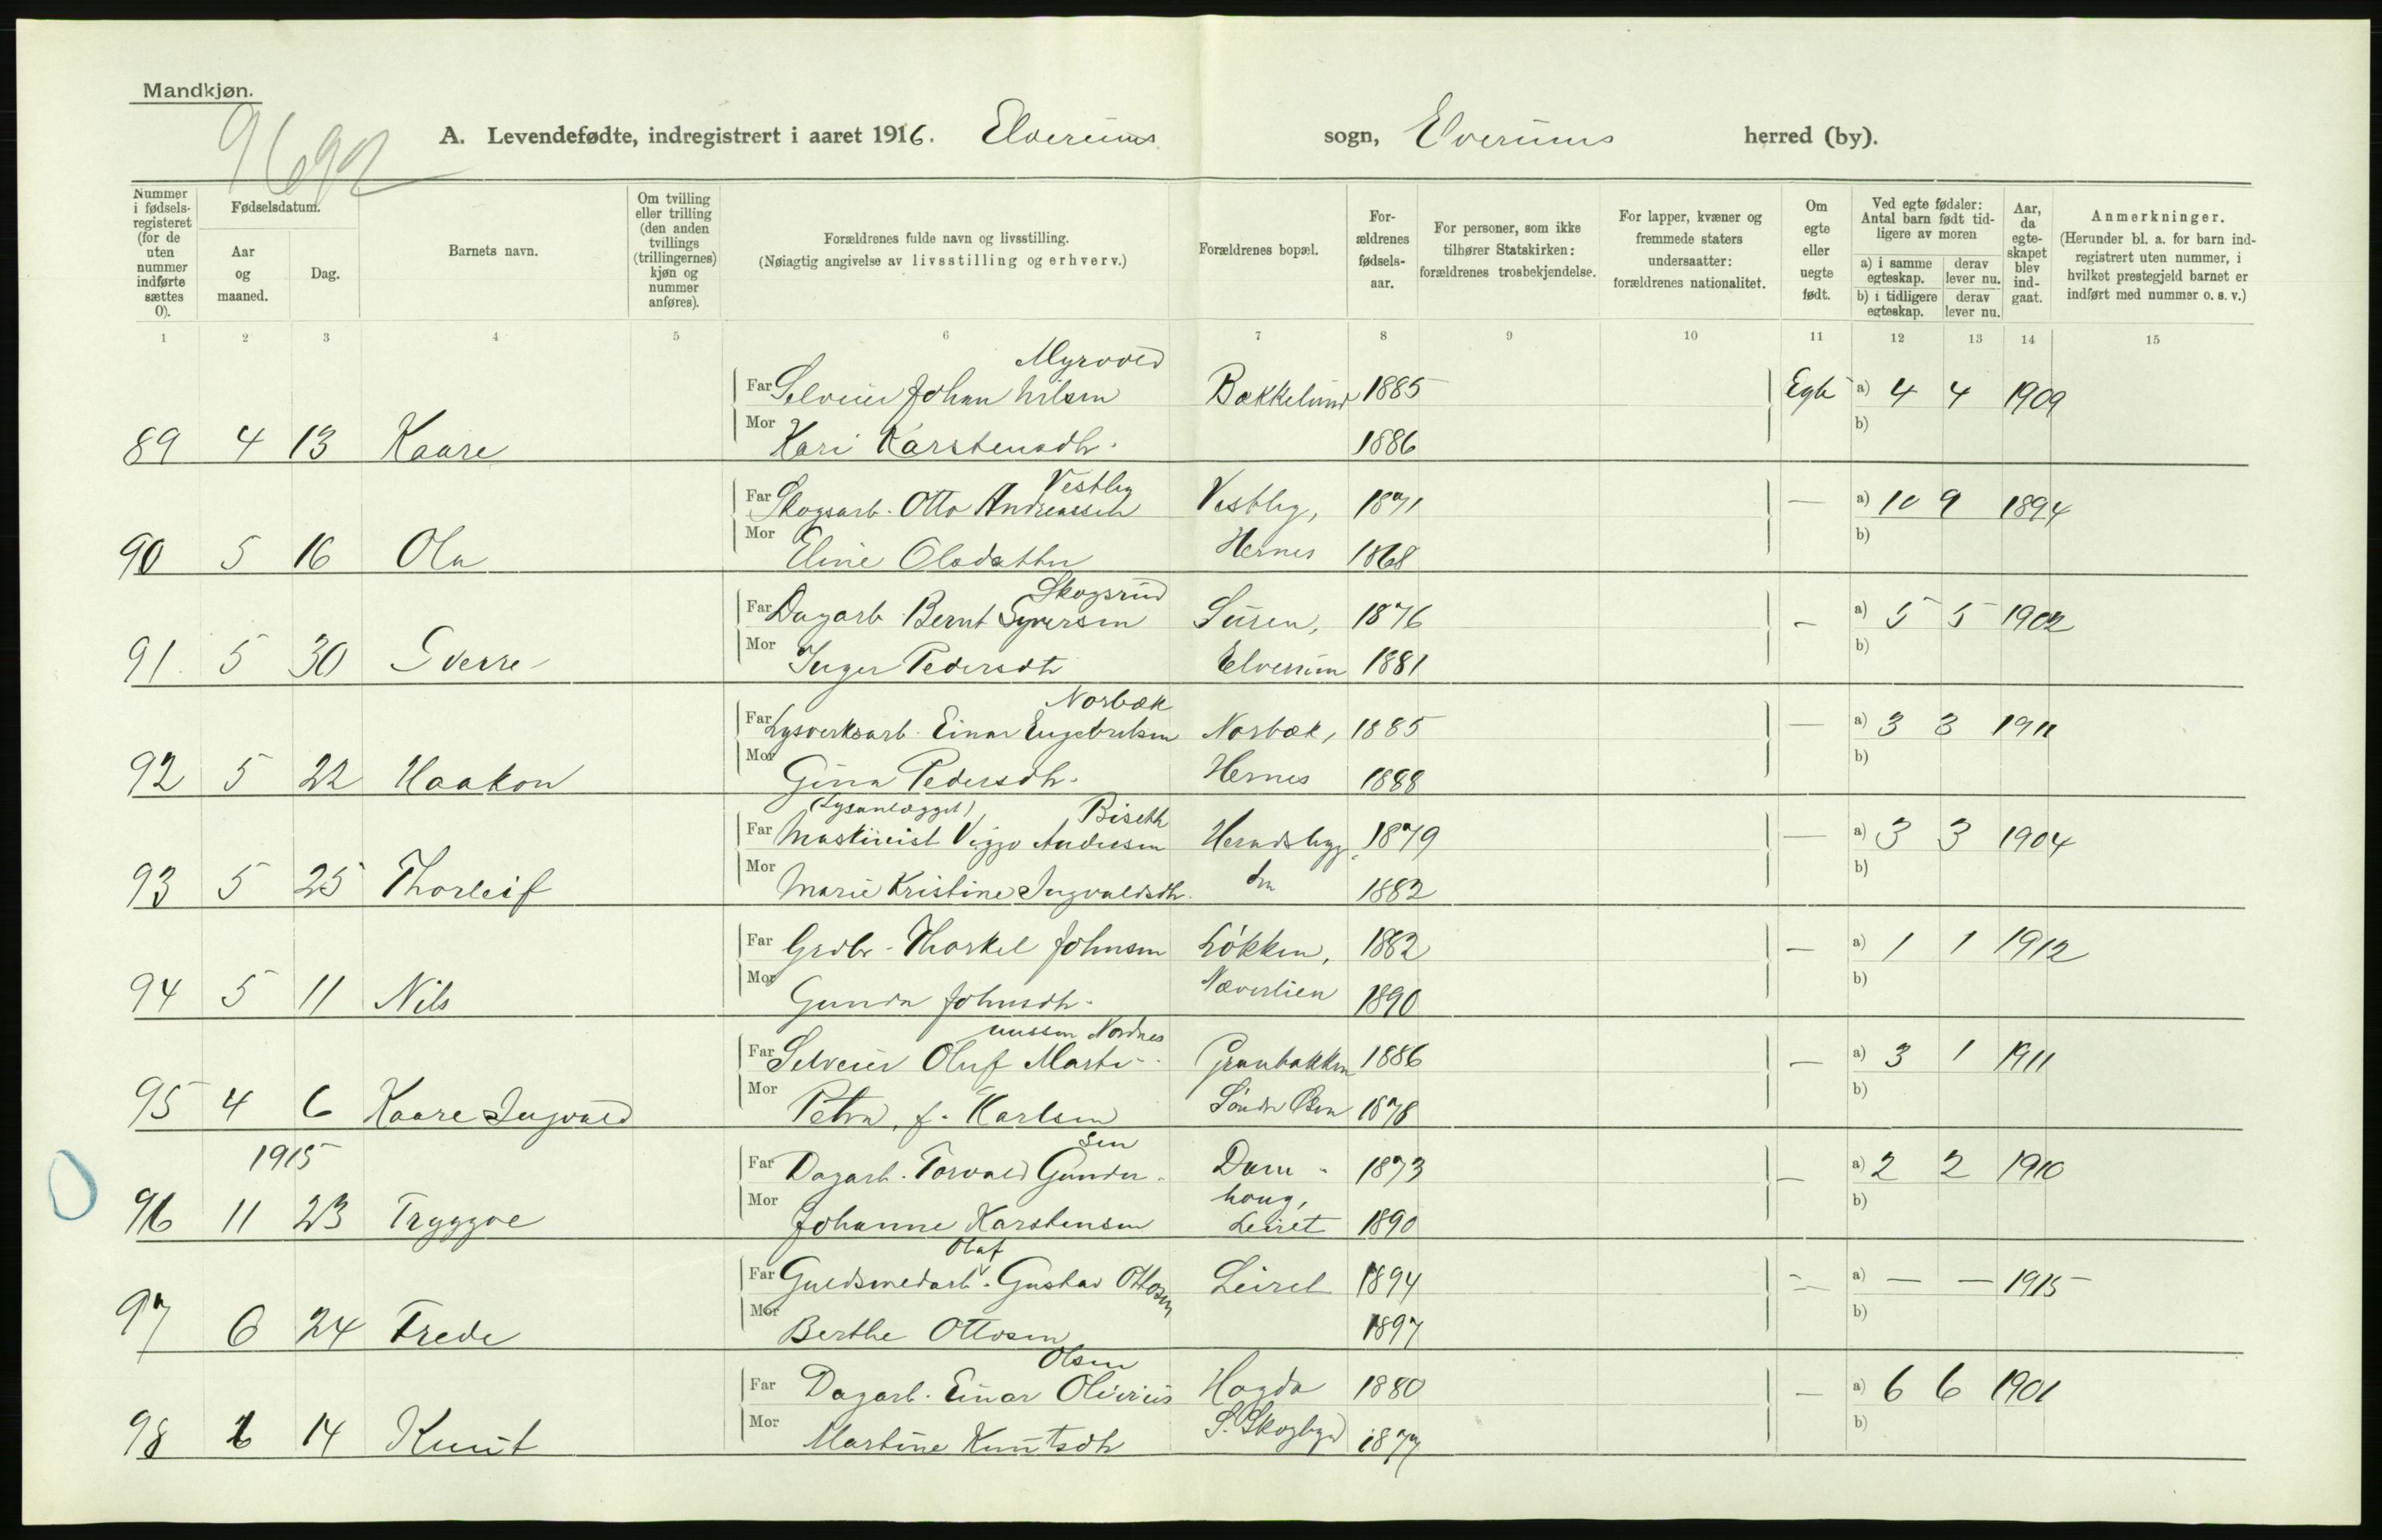 Mandkjøn.
9692
A. Levendefødte, indregistrert i aaret 1916. Elverums sogn, Elverums herred (by).
Nummer i fødsels-registeret (for de uten nummer indførte sættes 0).
Fødselsdatum.
Aar og maaned.
Dag.
Barnets navn.
Om tvilling eller trilling (den anden tvillings (trillingernes) kjøn og nummer anføres).
Forældrenes fulde navn og livsstilling.
(Nøiagtig angivelse av livsstilling og erhverv.)
Forældrenes bopæl.
For-ældrenes fødsels-aar.
For personer, som ikke tilhører Statskirken: forældrenes trosbekjendelse.
For lapper, kvæner og fremmede staters undersaatter: forældrenes nationalitet.
Om egte eller uegte født.
Ved egte fødsler: Antal barn født tid-ligere av moren
a) i samme egteskap. derav lever nu.
b) i tidligere egteskap. derav lever nu.
Aar, da egte-skapet blev ind-gaat.
Anmerkninger.
(Herunder bl. a. for barn ind-registrert uten nummer, i hvilket prestegjeld barnet er indført med nummer o. s. v.)
1 2 3 4 5 6 7 8 9 10 11 12 13 14 15
Myrvold
Far Selveier Johan Nilsen Bakkelund 1885 Egte a) 4 4 1909
89 4 13 Kaare Mor Kari Karstensdtr. 1886 b)
Vestby
Far Skogsarb. Otto Andreassen Vestby, 1871 — a) 10 9 1894
90 5 16 Ola Mor Eline Olsdatter Hernes 1868 b)
Skogsrud
Far Dagarb Bernt Syversen 1876 — a) 5 5 1902
91 5 30 Sverre Mor Inger Pedersdtr Elverum 1881 b)
Norbæk
Far Lysverksarb. Einar Engebretsen Norbæk, 1885 — a) 3 3 1911
92 5 22 Haakon Mor Gina Pedersdtr. Hernes 1888 b)
(Lysanlægget) Biseth
Far Maskinist Viggo Andersen Heradsbyg 1879 — a) 3 3 1904
93 5 25 Thorleif Mor Marie Kristine Ingvaldsdtr. den 1882 b)
Far Grdbr. Thorkel Johnsen Løkken, 1882 — a) 1 1 1912
94 5 11 Nils Mor Gunda Johnsdtr. Næverlien 1890 b)
nussen Nordnes
Far Selveier Oluf Marti- Granbakken 1886 — a) 3 1 1911
95 4 6 Kaare Ingvald Mor Petra, f. Karlsen Søndre Osen 1878 b)
1915 sen
Far Dagarb. Torvald Gunder- Dam- 1873 — a) 2 2 1910
96 11 23 Tryggve Mor Johanne Karstensen houg, Leiret 1890 b)
Olaf
Far Guldsmedarb. Gustav Ottosen Leiret 1894 — a) — — 1915
97 6 24 Frede Mor Berthe Ottosen 1897 b)
Olsen
Far Dagarb. Einar Oliverius Hagda 1880 — a) 6 6 1901
98 6 14 Knut Mor Martine Knutsdtr S. Skogbygd 1877 b)